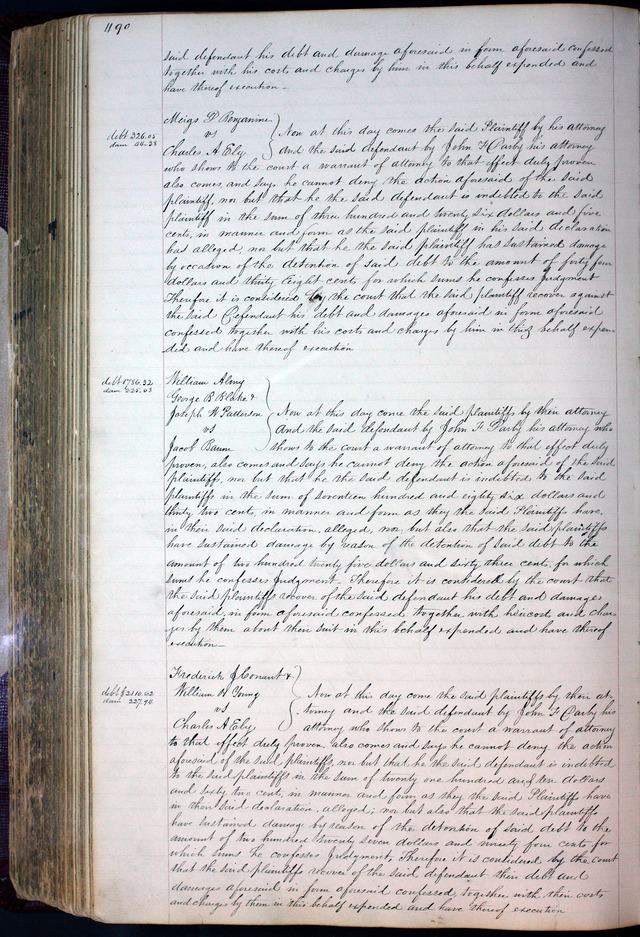 1190
said defendant his debt and damage aforesaid in form aforesaid confessed
together with his costs and charges by him in this behalf expended and
have thereof execution
Meigs D Benjamine
debt 326.05
dam 44.38
vs Now at this day comes the said Plaintiff by his attorney
Charles A Ely and the said defendant by John F Darby his attorney
who shows to the court a warrant of attorney to that effect duly proven
also comes, and says he cannot deny the action aforesaid of the said
plaintiff, nor but that he the said defendant is indebted to the said
plaintiff in the sum of three hundred and twenty six dollars and five
cents, in manner and form as the said plaintiff in his said declaration
has alleged, nor but that he the said plaintiff has sustained damage
by occasion of the detention of said debt to the amount of forty four
dollars and thirty eight cents for which sums he confesses judgment
Therefore it is considered by the court that the said plaintiff recover against
the said Defendant his debt and damages aforesaid in form aforesaid
confessed together with his costs and charges by him in this behalf expen-
ded and have thereof execution
debt 1786.32
dam 225.63
William Almy
George B Blake &
Joseph W Patterson Now at this day come the said plaintiffs by their attorney
vs and the said defendant by John F Darby, his attorney who
Jacob Baum shows to the court a warrant of attorney to that effect duly
proven, also comes and says he cannot deny the action aforesaid of the said
plaintiffs, nor but that he the said defendant is indebted to the said
plaintiffs in the sum of seventeen hundred and eighty six dollars and
thirty two cents, in manner and form as they the said Plaintiffs have,
in their said declaration, alleged, nor, but also that the said plaintiffs
have sustained damage by reason of the detention of said debt to the
amount of two hundred twenty five dollars and sixty three cents, for which
sums he confesses judgment. Therefore it is considered by the court that
the said plaintiffs recover of the said defendant his debt and damages
aforesaid, in form aforesaid confessed, together with costs and char-
ges by them about their suit in this behalf expended and have thereof
execution
debt $2110.62
dam 227.94
Frederick J Conant &
William H Young Now at this day come the said plaintiffs by their at-
vs torney and the said defendant by John F Darby his
Charles A Ely attorney who shows to the court a warrant of attorney
to that effect duly proven, also comes and says he cannot deny the action
aforesaid of the said plaintiffs, nor but that he the said defendant is indebted
to the said plaintiffs in the sum of twenty one hundred and ten dollars
and sixty two cents, in manner and form as they the said Plaintiffs have
in their said declaration alleged; nor but also that the said plaintiffs
have sustained damage by reason of the detention of said debt to the
amount of two hundred twenty seven dollars and ninety four cents for
which sums he confesses judgment, Therefore it is considered by the court
that the said plaintiffs recover of the said defendant their debt and
damages aforesaid in form aforesaid confessed, together with their costs
and charges by them in this behalf expended and have thereof execution